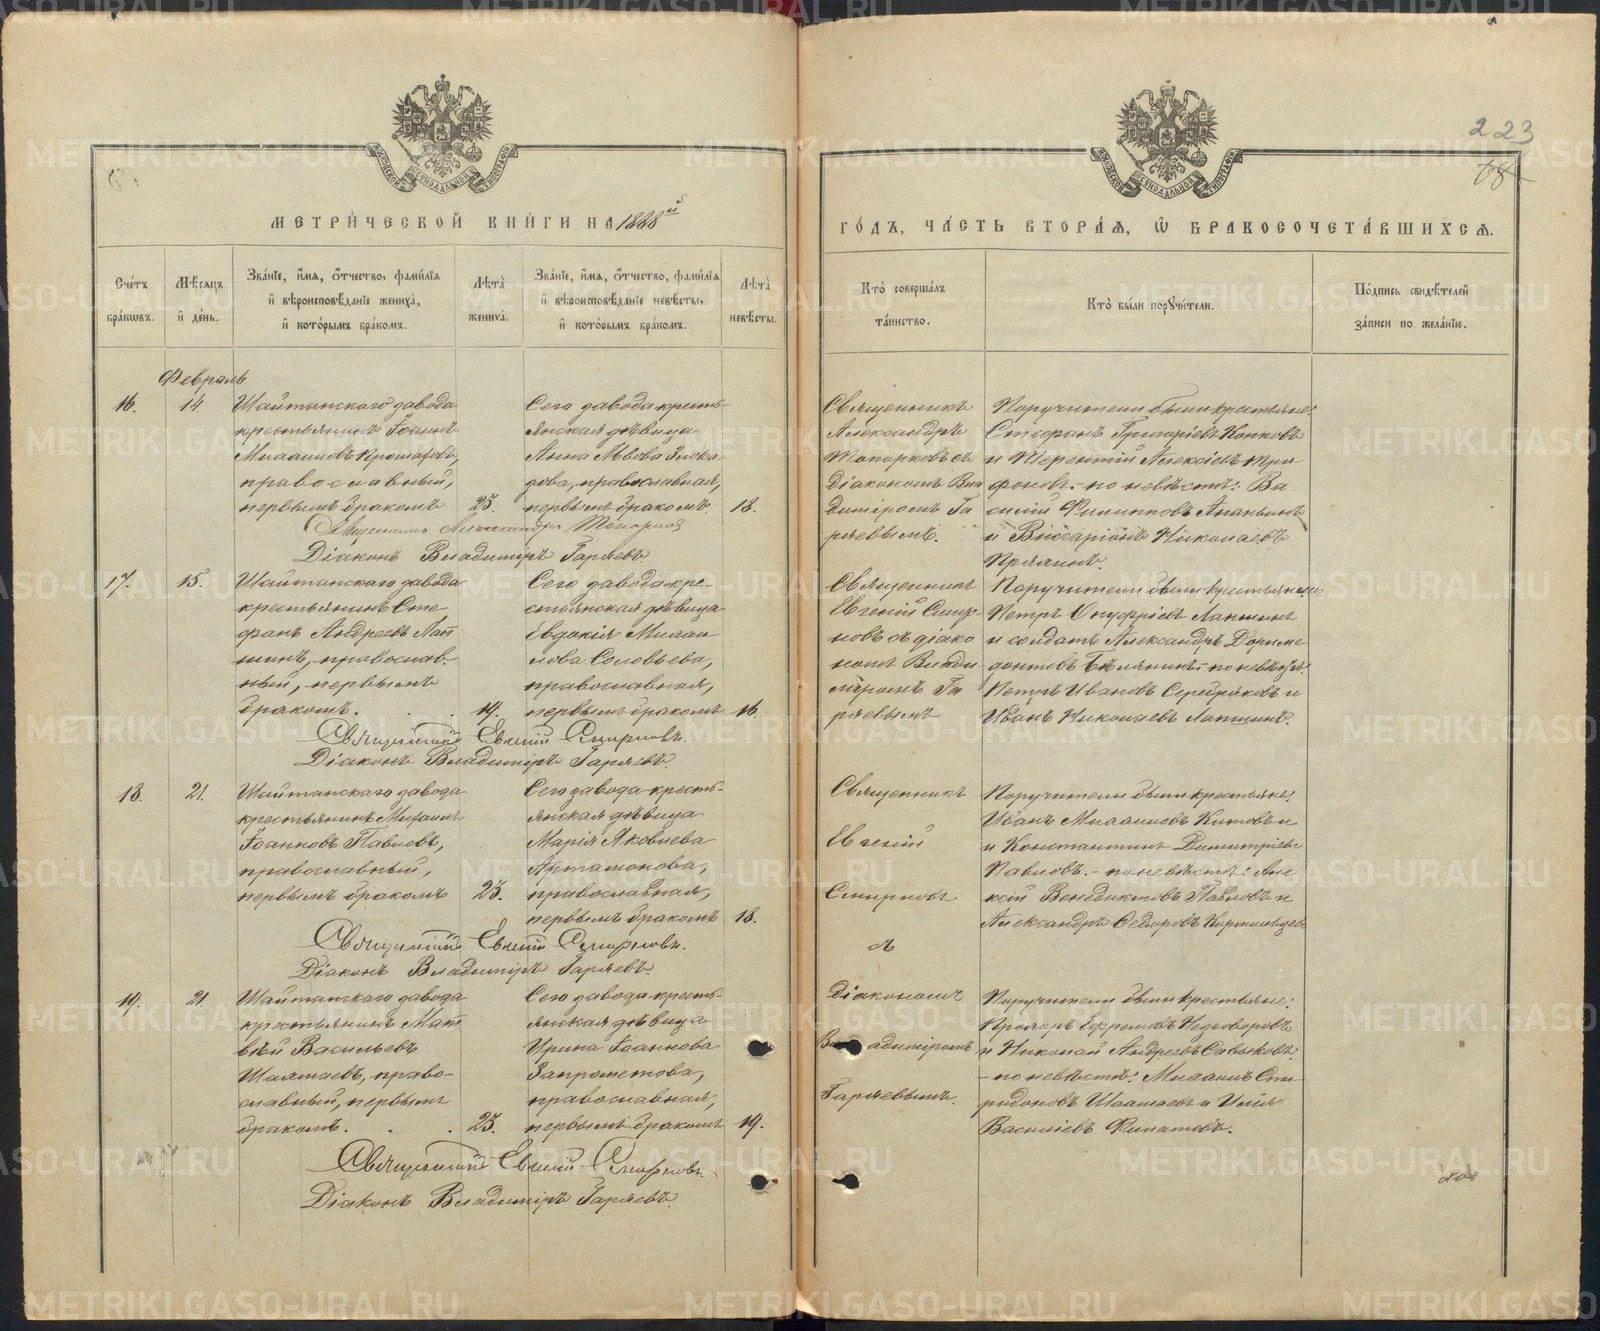 223
68
МЕТРИЧЕСКОЙ КНИГИ НА 1888й
ГОДЪ, ЧАСТЬ ВТОРАЯ, Ѡ БРАКОСОЧЕТАВШИХСЯ.
Счетъ браковъ.
Мѣсяцъ и день.
Званіе, имя, отчество, фамилія
и вѣроисповѣданіе жениха,
и которымъ бракомъ.
Лѣта жениха.
Званіе, имя, отчество, фамилія
и вѣроисповѣданіе невѣсты,
и которымъ бракомъ.
Лѣта невѣсты.
Кто совершалъ
таинство.
Кто были поручители.
Подпись свидѣтелей
записи по желанію.
Февраль
16. 14
Шайтанскаго завода
крестьянинъ Іоаннъ
Михаиловъ
православный,
первымъ бракомъ 23.
Сего завода кресть-
янская дѣвица
Анна Львова Злока-
зова, православная,
первымъ бракомъ. 18.
Священникъ
Александръ
Топорковъ съ
діакономъ Вла
диміромъ Га
ряевымъ.
Поручители были крестьяне:
Стефанъ Григоріевъ Копковъ
и Терентій Алексіевъ Три
фоновъ. - по невѣстѣ: Ва-
силій Филипповъ Ананьинъ
и Виссаріонъ Николаевъ
Пряхинъ.
Священникъ Александръ Топорковъ
Діаконъ Владиміръ Гаряевъ.
17. 15.
Шайтанскаго завода
крестьянинъ Сте-
фанъ Андреевъ Лап
шинъ, православ-
ный, первымъ
бракомъ. . . 19.
Сего завода кре-
стьянская дѣвица
Евдокія Михаи
лова Соловьева,
православная,
первымъ бракомъ 16.
Священникъ
Евгеній Смир
новъ съ діако
номъ Влади
міромъ Га
ряевымъ
Поручители были крестьяне
Петръ Онуфріевъ Лапшинъ
и солдатъ Александръ Дориме
донтовъ Бѣлянинъ - по невѣстѣ:
Петръ Ивановъ Серебряковъ и
Иванъ Николаевъ Лапшинъ.
Священникъ Евгеній Смирновъ.
Діаконъ Владиміръ Гаряевъ.
18. 21.
Шайтанскаго завода
крестьянинъ Михаилъ
Іоанновъ Павловъ,
православный,
первымъ бракомъ 23.
Сего завода кресть-
янская дѣвица
Марія Яковлева
Артамонова,
православная,
первымъ бракомъ 18.
Священникъ
Евгеній
Смирновъ
съ
діакономъ
Владиміромъ
Гаряевымъ.
Поручители были крестьяне:
Иванъ Михаиловъ Китовъ и
и Константинъ Димитріевъ
Павловъ. - по невѣстѣ: Але
ксій Венедиктовъ Павловъ и
Александръ Ѳедоровъ
Священникъ Евгеній Смирновъ.
Діаконъ Владиміръ Гаряевъ.
19. 21.
Шайтанскаго завода
крестьянинъ Мат
вѣй Васильевъ
Шалмаевъ, право-
славный, первымъ
бракомъ. . . 23.
Сего завода кресть-
янская дѣвица
Ирина Іоаннова
Запрометова,
православная,
первымъ бракомъ 19.
Поручители были крестьяне:
Прохоръ Ефремовъ Недговоровъ
и Николай Андреевъ Савоковъ:
- по невѣстѣ: Михаилъ Спи
ридоновъ Шалмаевъ и Илія
Василіевъ Филатовъ.
Священникъ Евгеній Смирновъ.
Діаконъ Владиміръ Гаряевъ.
METRIKI.GASO-URAL.RU